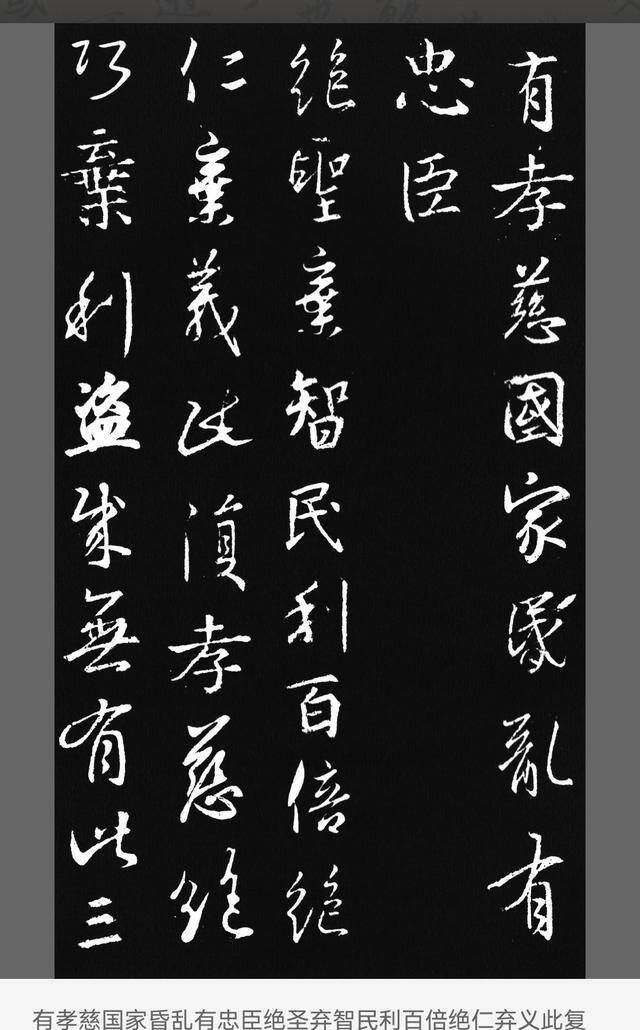 有孝慈國家昬亂有
忠臣
絕聖棄智民利百倍絕
仁棄義此復孝慈絕
巧棄利盗賊無有此三
有孝慈国家昏乱有忠臣绝圣弃智民利百倍绝仁弃义此复